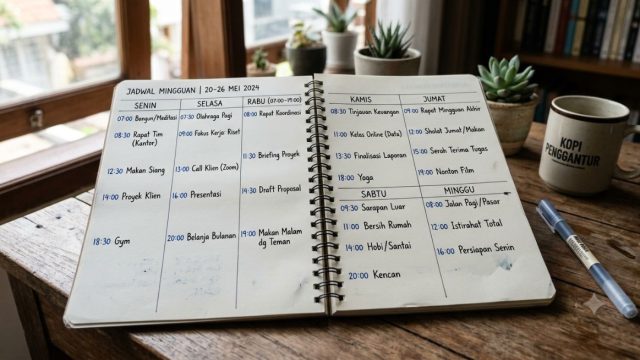 JADWAL MINGGUAN | 20-26 MEI 2024
SENIN
07:00 Bangun/Meditasi
08:30 Rapat Tim
(Kantor)
12:30 Makan Siang
14:00 Proyek Klien
18:30 Gym
SELASA
07:30 Olahraga Pagi
09:00 Fokus Kerja: Riset
13:00 Call Klien (Zoom)
16:00 Presentasi
20:00 Belanja Bulanan
RABU (07:00-19:00)
08:00 Rapat Koordinasi
11:30 Briefing Proyek
14:30 Draft Proposal
19:00 Makan Malam
dg Teman
KAMIS
08:30 Tinjauan Keuangan
11:00 Kelas Online (Data)
13:30 Finalisasi Laporan
18:00 Yoga
JUMAT
09:00 Rapat Mingguan Akhir
12:00 Sholat Jumat/Makan
15:00 Serah Terima Tugas
19:00 Nonton Film
SABTU
09:30 Sarapan Luar
11:00 Bersih Rumah
14:00 Hobi/Santai
20:00 Kencan
MINGGU
08:00 Jalan Pagi/Pasar
12:00 Istirahat Total
16:00 Persiapan Senin
KOPI
PENGGANTUR